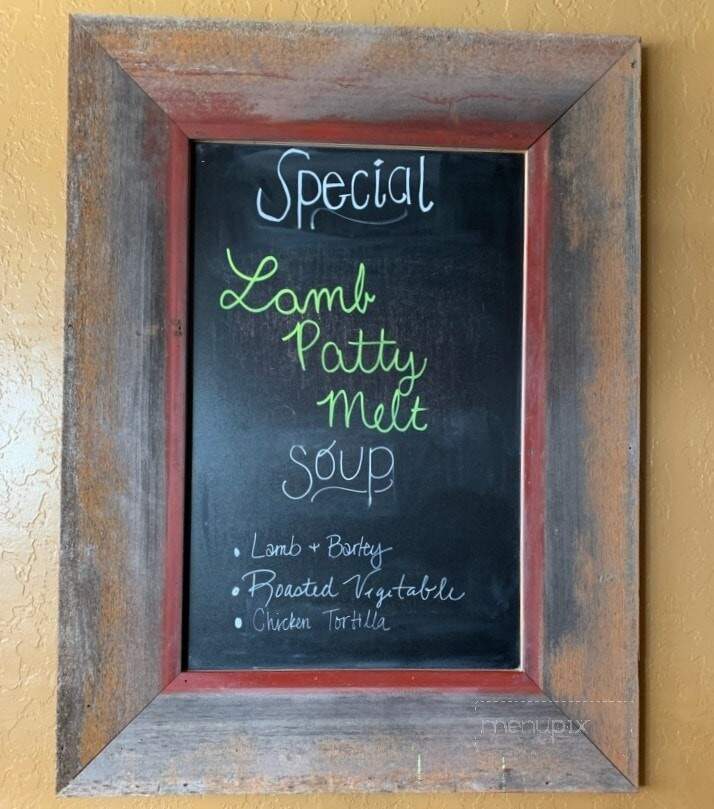 Special
Lamb
Patty
Melt
Soup
• Lamb + Barley
• Roasted Vegetable
• Chicken Tortilla
menupix